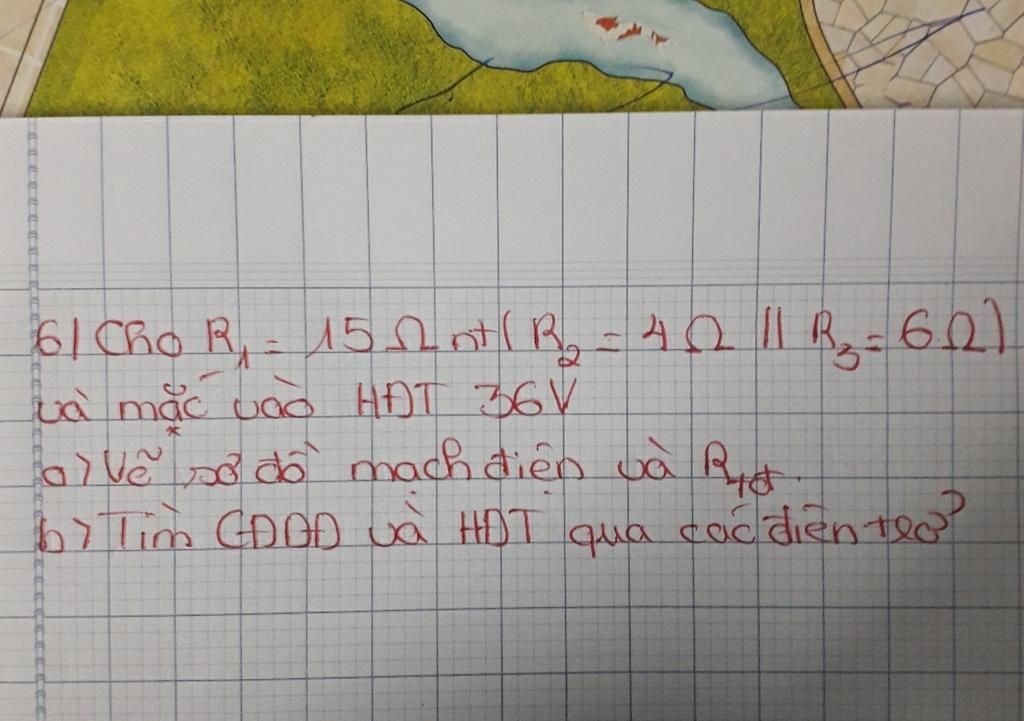 6/ Cho R1 = 15 Ω nt ( R2 = 4 Ω // R3 = 6 Ω )
và mắc vào HĐT 36V
a) Vẽ sơ đồ mạch điện và Rtđ.
b) Tìm CĐDĐ và HĐT qua các điện trở?